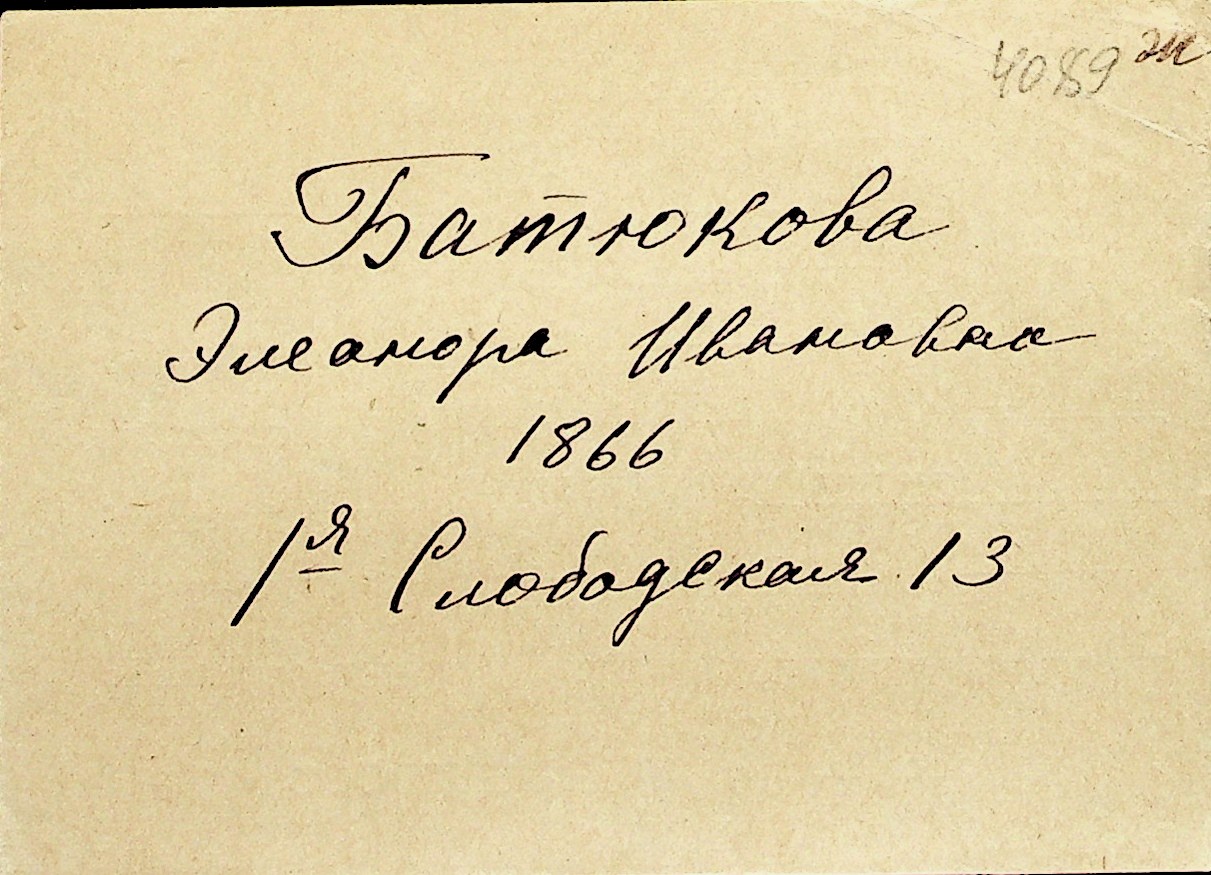 4089 ж
Батюкова
Элеонора Ивановна
1866
1я Слободская 13